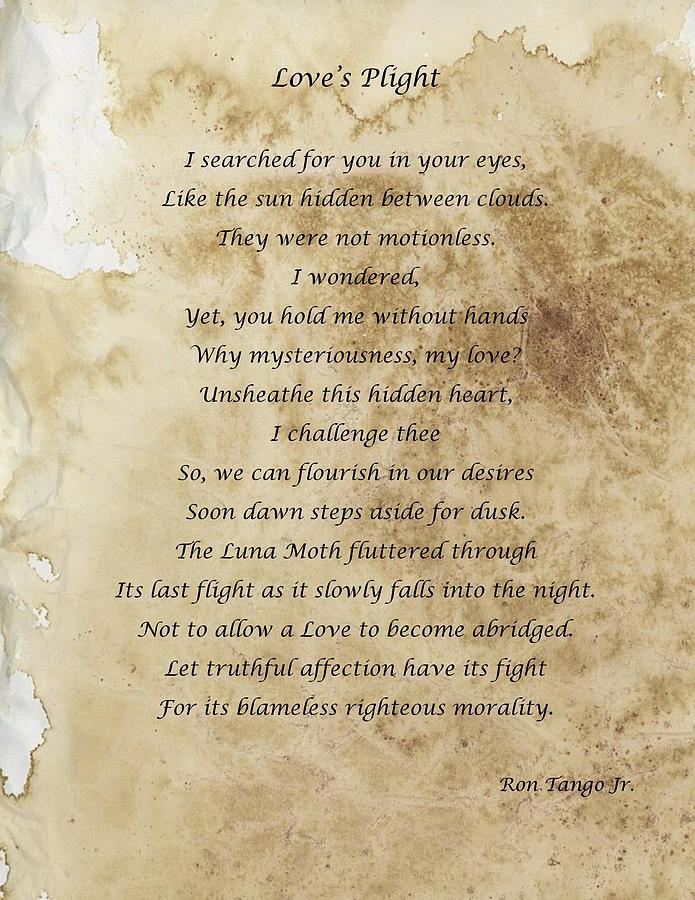 Love's Plight
I searched for you in your eyes,
Like the sun hidden between clouds.
They were not motionless.
I wondered,
Yet, you hold me without hands
Why mysteriousness, my love?
Unsheathe this hidden heart,
I challenge thee
So, we can flourish in our desires
Soon dawn steps aside for dusk.
The Luna Moth fluttered through
Its last flight as it slowly falls into the night.
Not to allow a Love to become abridged.
Let truthful affection have its fight
For its blameless righteous morality.
Ron Tango Jr.